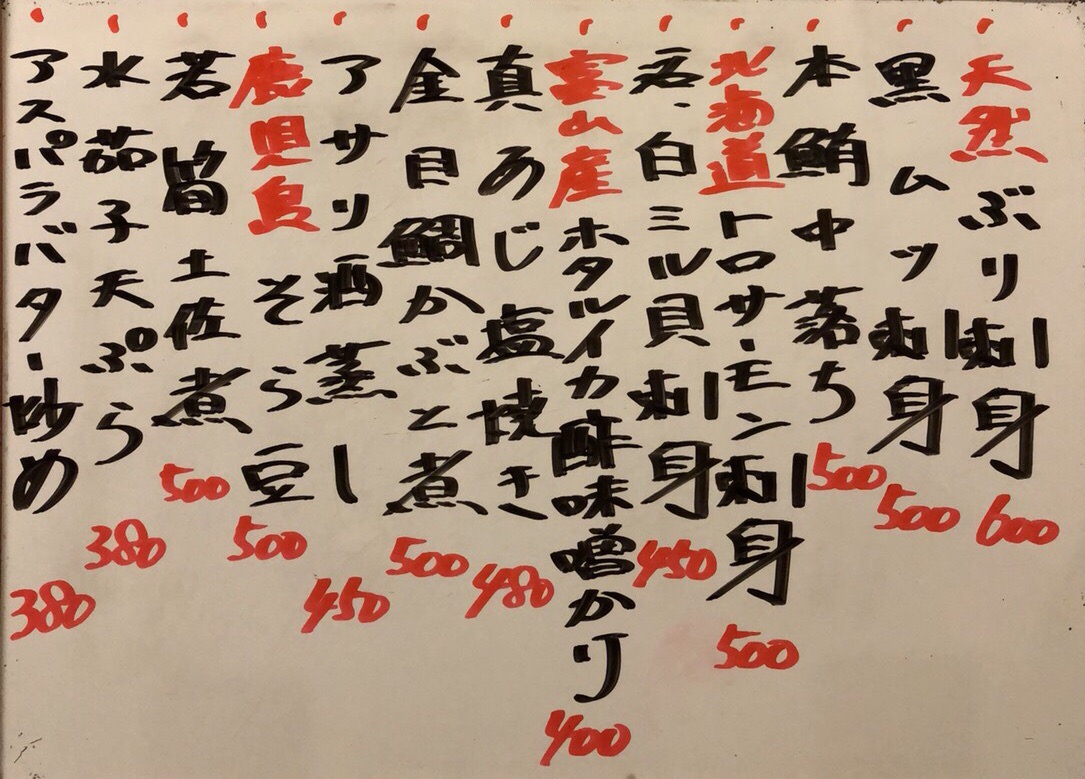 天然ぶり刺身 600
黒ムツ刺身 500
本鮪中落ち 500
北海道トロサーモン刺身 500
白ミル貝刺身 450
富山産ホタルイカ酢味噌かり 400
真あじ塩焼き 480
金目鯛かぶと煮 500
アサリ酒蒸し 450
鹿児島そら豆 500
若筍土佐煮 500
水茄子天ぷら 380
アスパラバター炒め 380